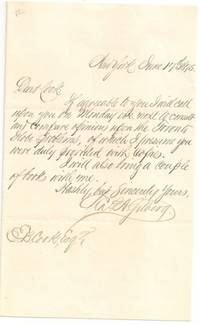 New York June 17/
Dear Cook
If agreeable to you I will call
upon you on Monday eve next to consult
and compare opinions upon the Toronto
Globe problems, of which I presume you
were duly provided with copies.
I will also bring a couple
of books with me.
Sincerely Yours,
E. B. Cook, Esq.